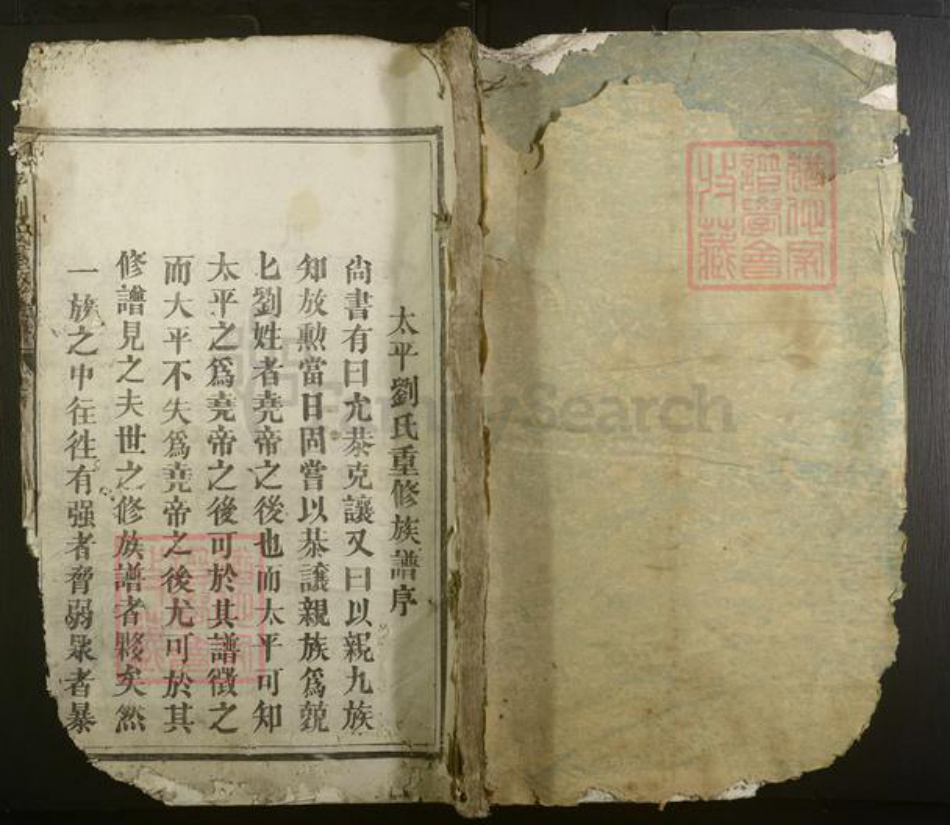 太平劉氏重修族譜序
尙書有曰允恭克讓又曰以親九族
知放勲當日固嘗以恭讓親族爲兢
匕劉姓者堯帝之後也而太平可知
太平之爲堯帝之後可於其譜徵之
而大平不失爲堯帝之後尤可於其
修譜見之夫世之修族譜者夥矣然
一族之中往徃有强者脅弱衆者暴
譜學會
收藏
FamilySearch